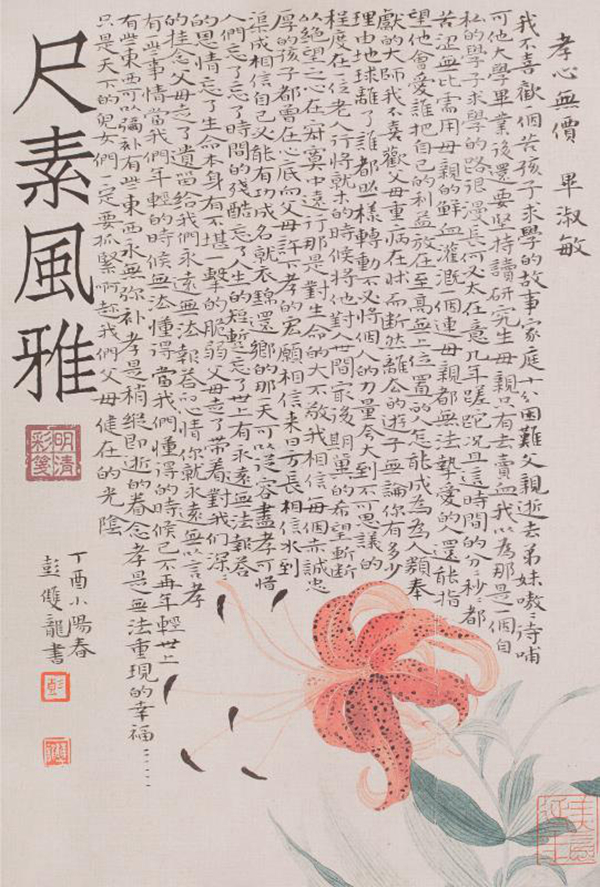 孝心無價 畢淑敏
我不喜歡個苦孩子求學的故事家庭十分困難父親逝去弟妹嗷嗷待哺
可他大學畢業後還要堅持讀研究生母親只有去賣血我以為那是一個自
私的學子求學的路很漫長何必太在意几年蹉跎況且這時間的分分秒秒都
苦澀無比需用母親的鮮血灌溉個連母親都無法摯愛的人還能指
望他會愛誰把自己的利益放在至高無上位置的人怎能成為為人類奉
獻的大師我不喜歡父母重病在牀而斷然離的遊子無論你有多少
理由地球離了誰都照樣轉動不必將個人的力量夸大到不可思議的
程度在一位老人行將就木的時候將他對人世間最後期冀的希望斬斷
以絕望之心在寂寞中遠行那是對生命的大不敬我相信每個赤誠忠
厚的孩子都曾在心底向父母許下孝的宏願相信來日方長相信水到
渠成相信自己必能有功成名就衣錦還鄉的那一天可以從容盡孝可惜
人們忘了忘了時間的殘酷忘了人生的短暫忘了世上有永遠無法報答
的恩情忘了生命本身有不堪一擊的脆弱父母走了帶着對我們深深
的挂念父母走了遺留給我們永遠無法報答的心情你就永遠無以言孝
有一些事情當我們年輕的時候無法懂得當我們懂得的時候已不再年輕世上
有些東西可以彌補有些東西永無弥補孝是稍縱即逝的眷念孝是無法重現的幸福……
只是天下的兒女們一定要抓緊啊趁我們父母健在的光陰
丁酉小陽春
彭雙龍書
彭
尺素風雅
明清彩箋